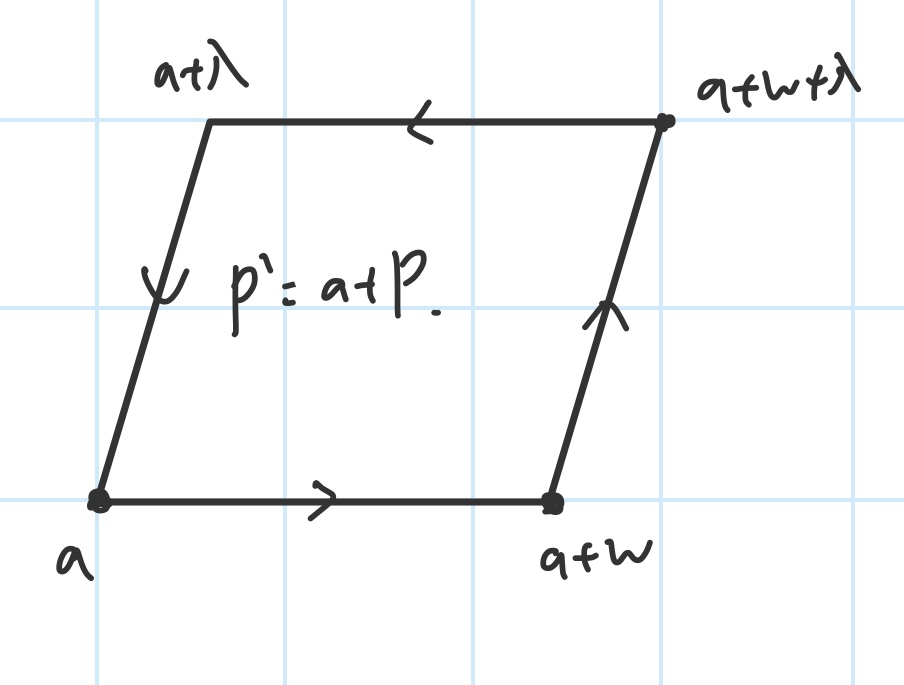 a+λ
a+w+λ
P'= a+P.
a
a+w